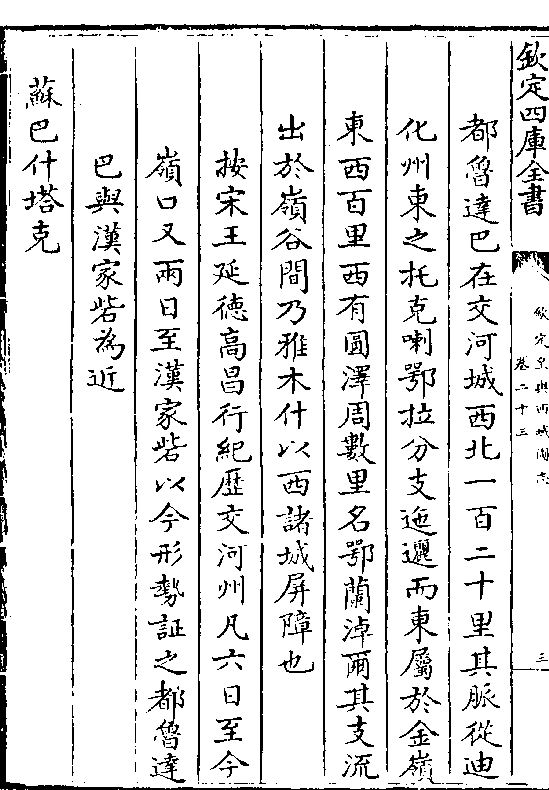 欽定四庫全書
欽定皇輿西域圖志
卷二十三
三
都魯達巴在交河城西北一百二十里其脈從迪
化州東之托克喇鄂拉分支迤邐而東屬於金嶺
東西百里西有圓澤周數里名鄂蘭淖爾其支流
出於嶺谷間乃雅木什以西諸城屏障也
按宋王延德高昌行紀歷交河州凡六日至今
嶺口又兩日至漢家砦以今形勢証之都魯達
巴與漢家砦為近
蘇巴什塔克